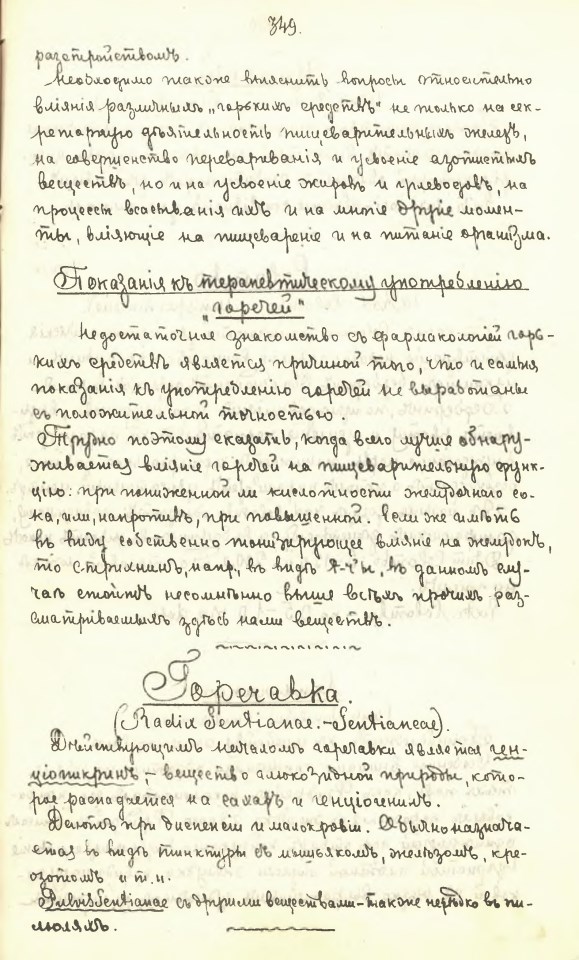 349.
разстройствомъ.
Необходимо также выяснить вопросы относительно
вліянія различныхъ „горькихъ средствъ" не только на сек-
реторную дѣятельность пищеварительныхъ железъ,
на совершенство перевариванія и усвоеніе азотистыхъ
веществъ, но и на усвоеніе жировъ и углеводовъ, на
процессы всасыванія ихъ и на многіе другіе момен-
ты, вліяющіе на пищевареніе и на питаніе организма.
Показанія къ терапевтическому употребленію
"горечей"
Недостаточное знакомство съ фармакологіей горь-
кихъ средствъ является причиной того, что и самыя
показанія къ употребленію горечей не выработаны
съ положительной точностью.
Трудно поэтому сказать, когда всего лучше обнару-
живается вліяніе горечей на пищеварительную функ-
цію: при пониженной ли кислотности желудочнаго со-
ка, или, напротивъ, при повышенной. Если же имѣть
въ виду собственно тонизирующее вліяніе на желудокъ,
то стрихнинъ, напр., въ видѣ t-r'ы, въ данномъ слу-
чаѣ стоитъ несомнѣнно выше всѣхъ прочихъ раз-
сматриваемыхъ здѣсь нами веществъ.
Горечавка.
(Radix Gentianae.-Gentianeae).
Дѣйствующимъ началомъ горечавки является ген-
ціопикринъ – вещество глюкозидной природы, кото-
рое распадается на сахаръ и генціогенинъ.
Даютъ при диспепсіи и малокровіи. Обычно назнача-
ется въ видѣ тинктуры съ мышьякомъ, желѣзомъ, кре-
озотомъ и т.п.
Pulvis Gentianae съ другими веществами-также нерѣдко въ пи-
люляхъ.